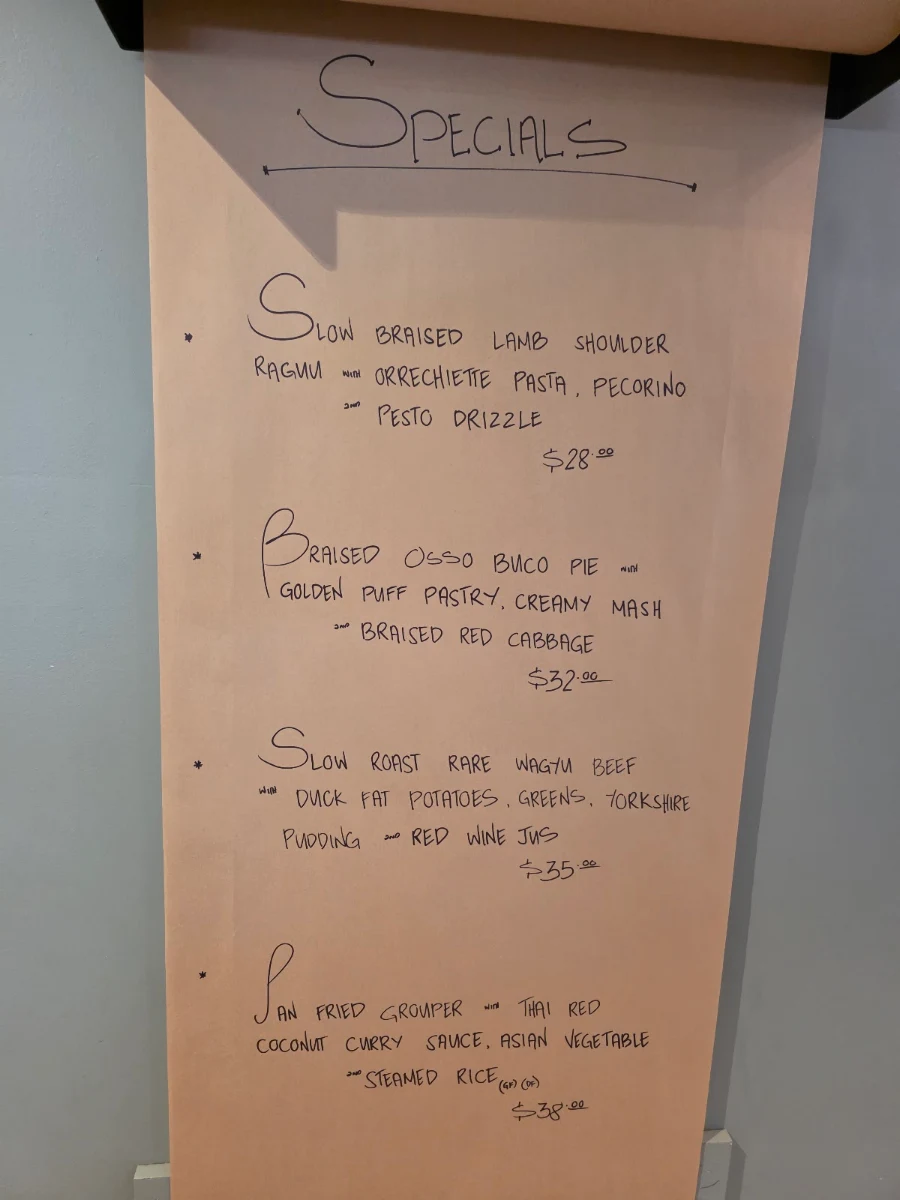 SPECIALS
* SLOW BRAISED LAMB SHOULDER
RAGUU WITH ORRECHIETTE PASTA, PECORINO
AND PESTO DRIZZLE
$28.00
* BRAISED OSSO BUCO PIE WITH
GOLDEN PUFF PASTRY, CREAMY MASH
AND BRAISED RED CABBAGE
$32.00
* SLOW ROAST RARE WAGYU BEEF
WITH DUCK FAT POTATOES, GREENS, YORKSHIRE
PUDDING AND RED WINE JUS
$35.00
* PAN FRIED GROUPER WITH THAI RED
COCONUT CURRY SAUCE, ASIAN VEGETABLE
AND STEAMED RICE (GF) (DF)
$38.00